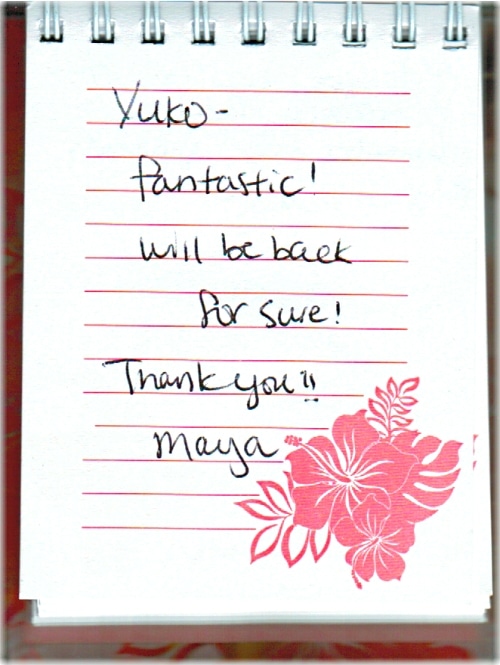 Yuko-
fantastic!
will be back
for sure!
Thank you!!
Maya